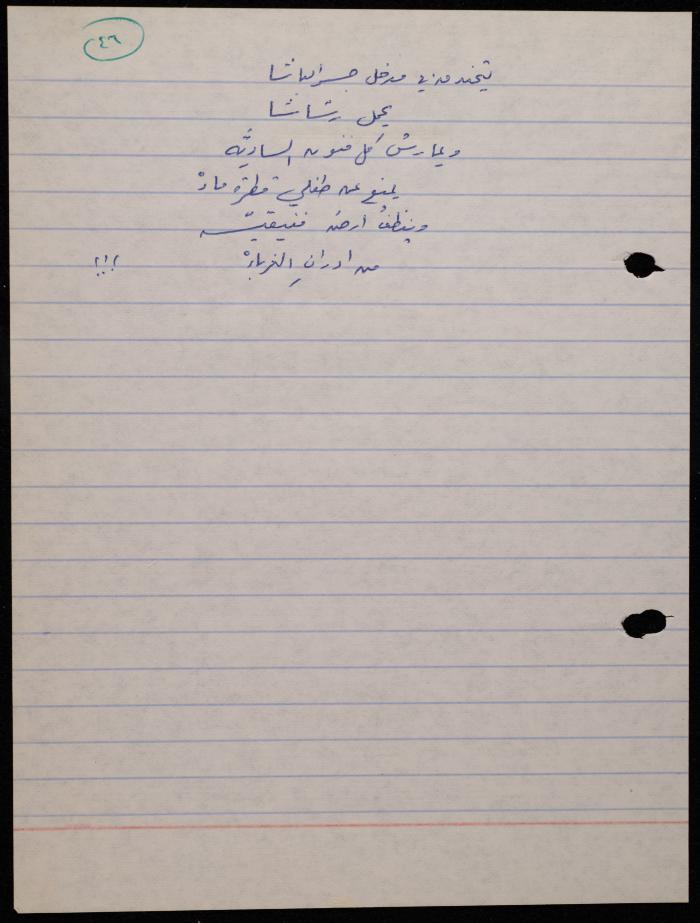 ٤٦
يتخندق في مدخل جسر الباشا
يحمل رشاشا
ويمارسُ كل فنون الساديَّه
يمنع عن طفلي قطرة ماءْ
وينظفُ ارض فنيقيّه
من ادرانِ الغرباءْ !!؟